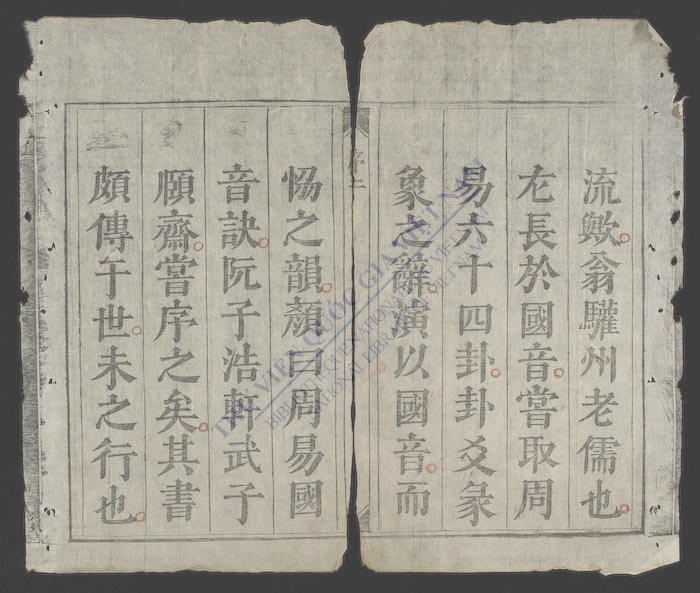 流歟翁驩州老儒也
尤長於國音嘗取周
易六十四卦卦爻彖
象之辭演以國音而
序二
恊之韻顏曰周易國
音訣阮子浩軒武子
頤齋嘗序之矣其書
頗傳于世未之行也
THƯ VIỆN QUỐC GIA VIỆT NAM
BIBLIOTHÈQUE NATIONALE DU VIETNAM
NATIONAL LIBRARY OF VIETNAM